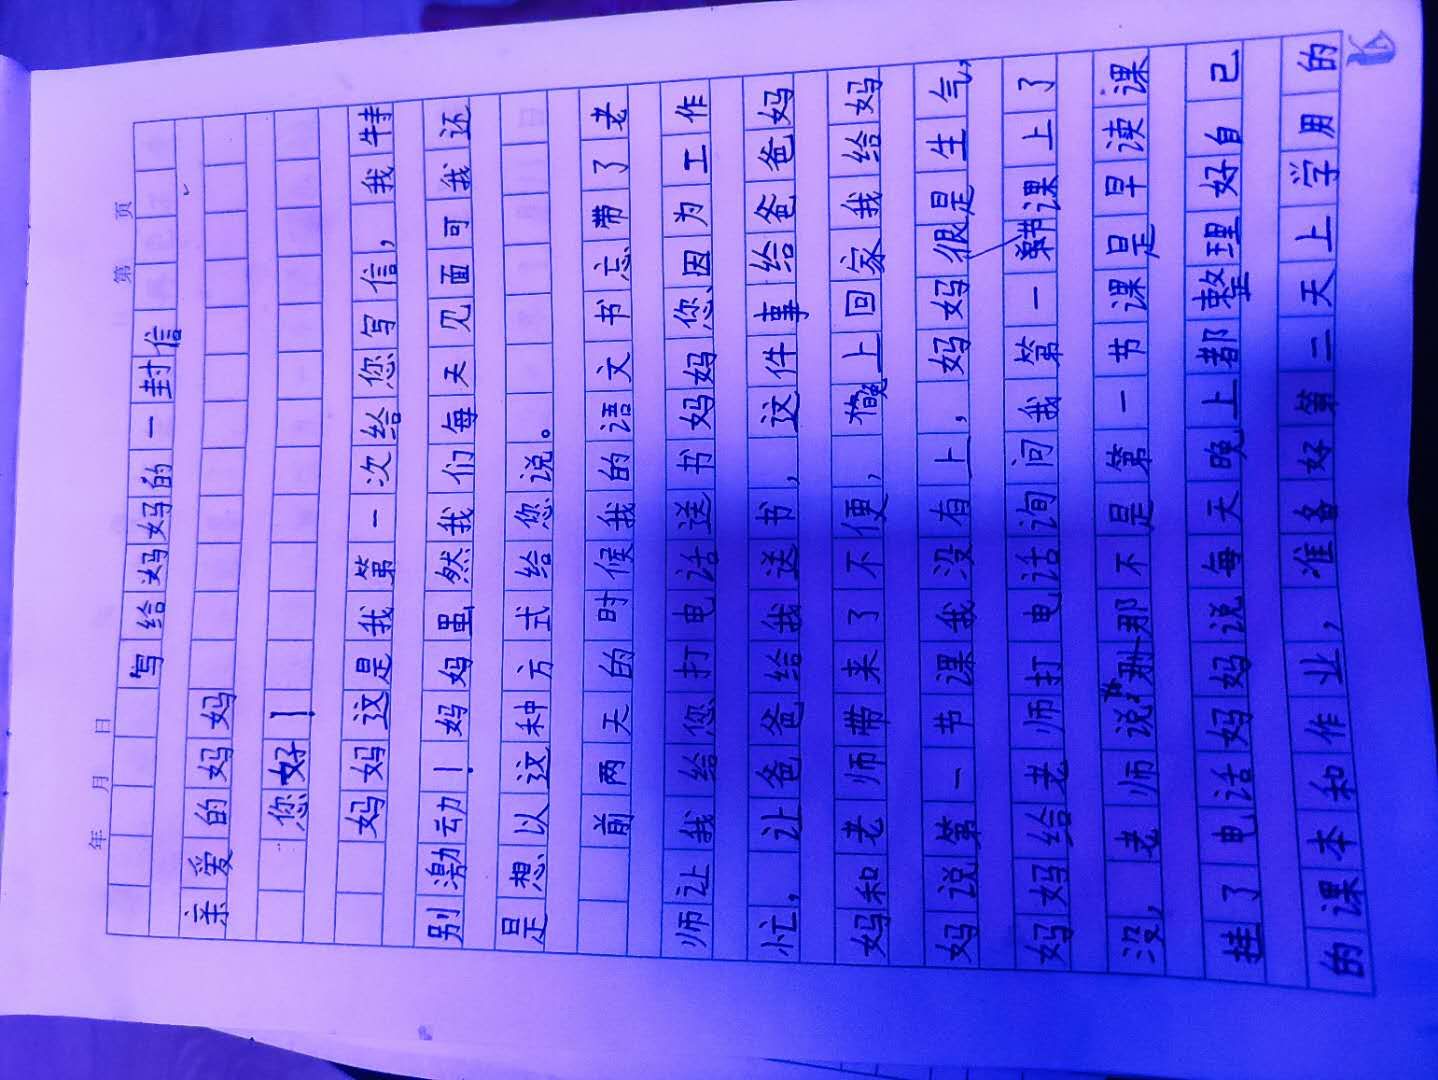 年 月 日 第 页
写给妈妈的一封信
亲爱的妈妈
您好！
妈妈这是我第一次给您写信，我特
别激动！妈妈虽然我们每天见面可我还
是想以这种方式给您说。
前两天的时候我的语文书忘带了老
师让我给您打电话送书妈妈您因为工作
忙，让爸爸给我送书，这件事给爸爸妈
妈和老师带来了不便，晚上回家我给妈
妈说第一节课我没有上，妈妈很是生气，
妈妈给老师打电话询问我第一节课上了
没，老师说那不是第一节课是早读课
挂了电话妈妈说每天晚上都整理好自己
的课本和作业，准备好第二天上学用的